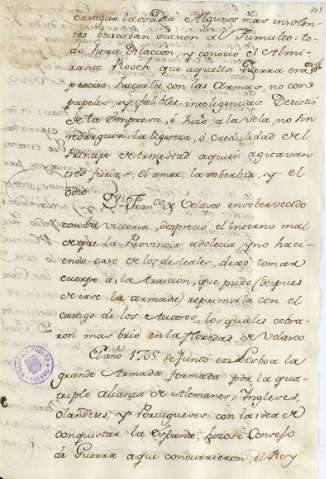 castigar la osadia. Algunos mas insolen-
tes buscaban ocasion al Tumulto: to-
do hera Dilacion, y conoció el Almi-
rante Rooch que aquella Guerra era
preciso hacerla con las Armas, no con
papeles, y falibles inteligencias. Desistió
de la Empresa, é hizo a la vela, no sin
la ligereza, ó credulidad del
Principe de Armestad aquien agitavan
tres furias, el amor, la sobervia, y el
odio.
Dn Fran.co de Velasco ensobervecido
con esta victoria, despreció el interno mal
de que la Provincia adolecia, y no hacien-
endo caso de los desleales, dejó tomar
cuerpo á la traicion, que pudo (despues
de irse la armada) reprimirla con el
castigo de los Autores, los quales cobra-
ron mas brio en la flojedad de Velasco.
El año 1705 se juntó en Lisboa la
grande Armada formada por la qua-
druple alianza de Alemanes, Ingleses,
Olandeses, y Portugueses con la idea de
conquistar la España; hizose Consejo
de Guerra aque concurrieron el Rey